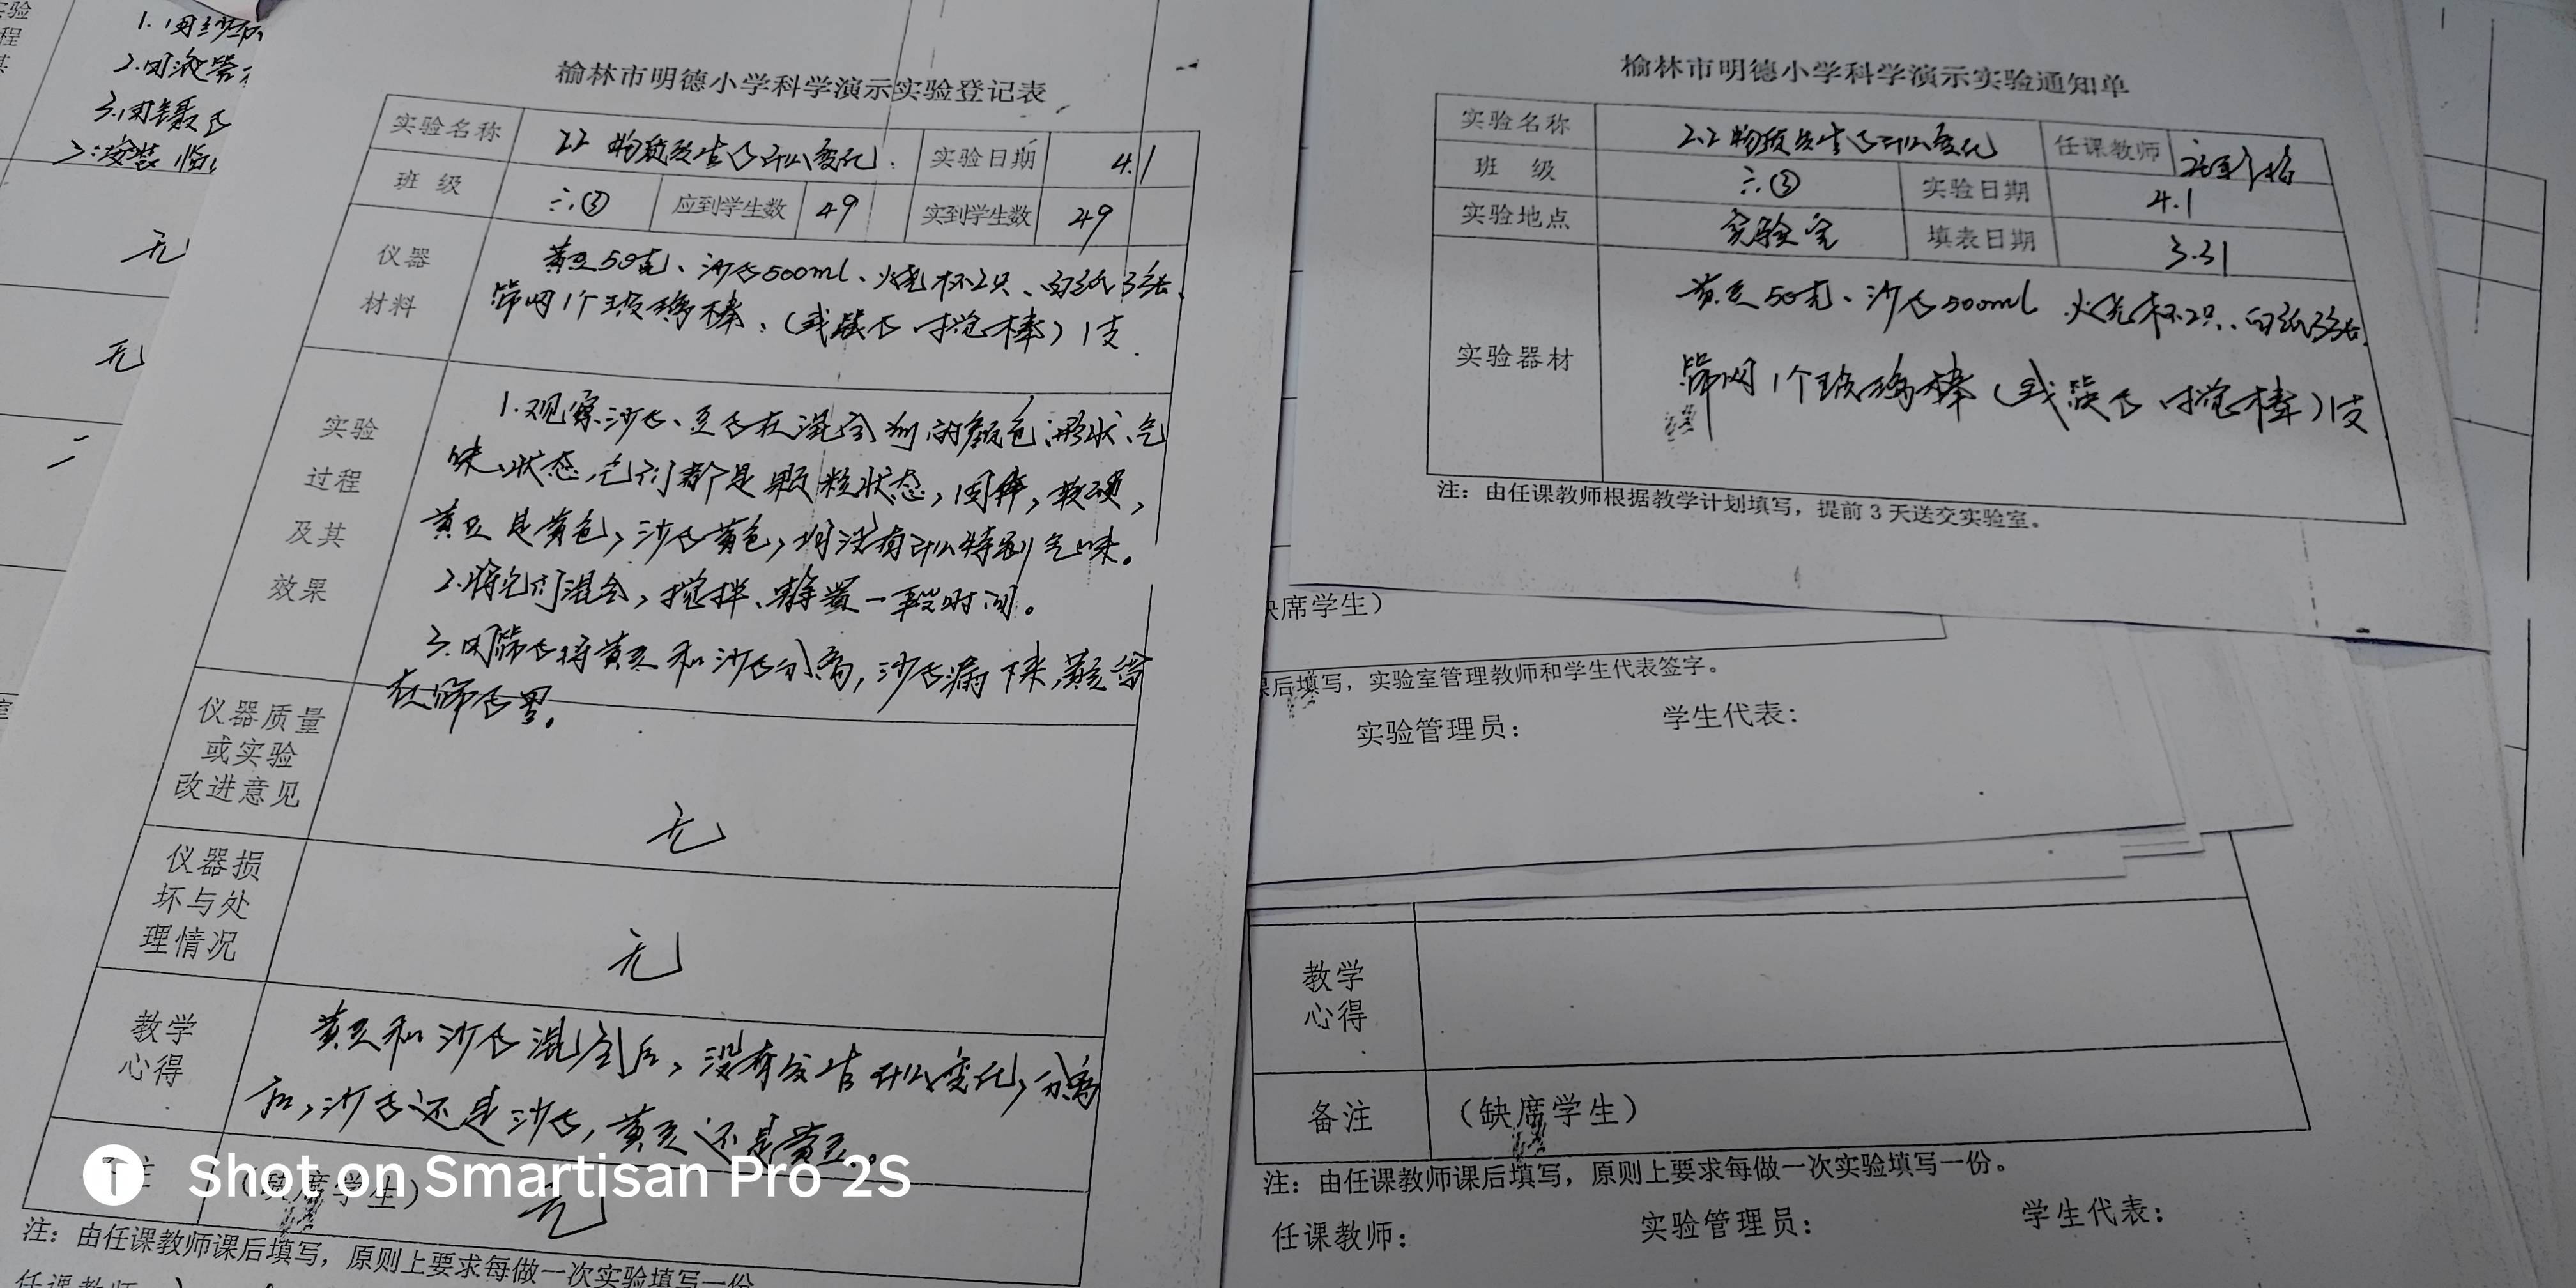 1.用
2.用滴管
3.用镊子
无
无
榆林市明德小学科学演示实验登记表
实验名称 2.2 物质发生了什么变化 实验日期 4.1
班 级 六.③ 应到学生数 49 实到学生数 49
仪器材料
黄豆50克、沙子500ml、烧杯2只、白纸3张、
筛网1个玻璃棒、(或筷子、搅棒)1支.
实验过程及其效果
1.观察沙子、豆子在混合前的颜色、形状、气
味、状态,它们都是颗粒状态,固体,较硬,
黄豆是黄色,沙子黄色,均没有什么特别气味。
2.将它们混合,搅拌、静置一段时间。
3.用筛子将黄豆和沙子分离,沙子漏下来,黄豆留
在筛子里。
仪器质量或实验改进意见
无
仪器损坏与处理情况
无
教学心得
黄豆和沙子混合后,没有发生什么变化,分离
后,沙子还是沙子,黄豆还是黄豆。
注 (缺席学生) 无
注：由任课教师课后填写，原则上要求每做一次实验填写一份
任课教师
榆林市明德小学科学演示实验通知单
实验名称 2.2 物质发生了什么变化 任课教师
班 级 六.③ 实验日期 4.1
实验地点 实验室 填表日期 3.31
实验器材
黄豆50克、沙子500ml 烧杯2只、白纸3张、
筛网1个玻璃棒(或筷子、搅棒)1支
注：由任课教师根据教学计划填写，提前3天送交实验室。
缺席学生）
课后填写，实验室管理教师和学生代表签字。
实验管理员： 学生代表：
教学心得
备注 （缺席学生）
注：由任课教师课后填写，原则上要求每做一次实验填写一份。
任课教师： 实验管理员： 学生代表：
Shot on Smartisan Pro 2S